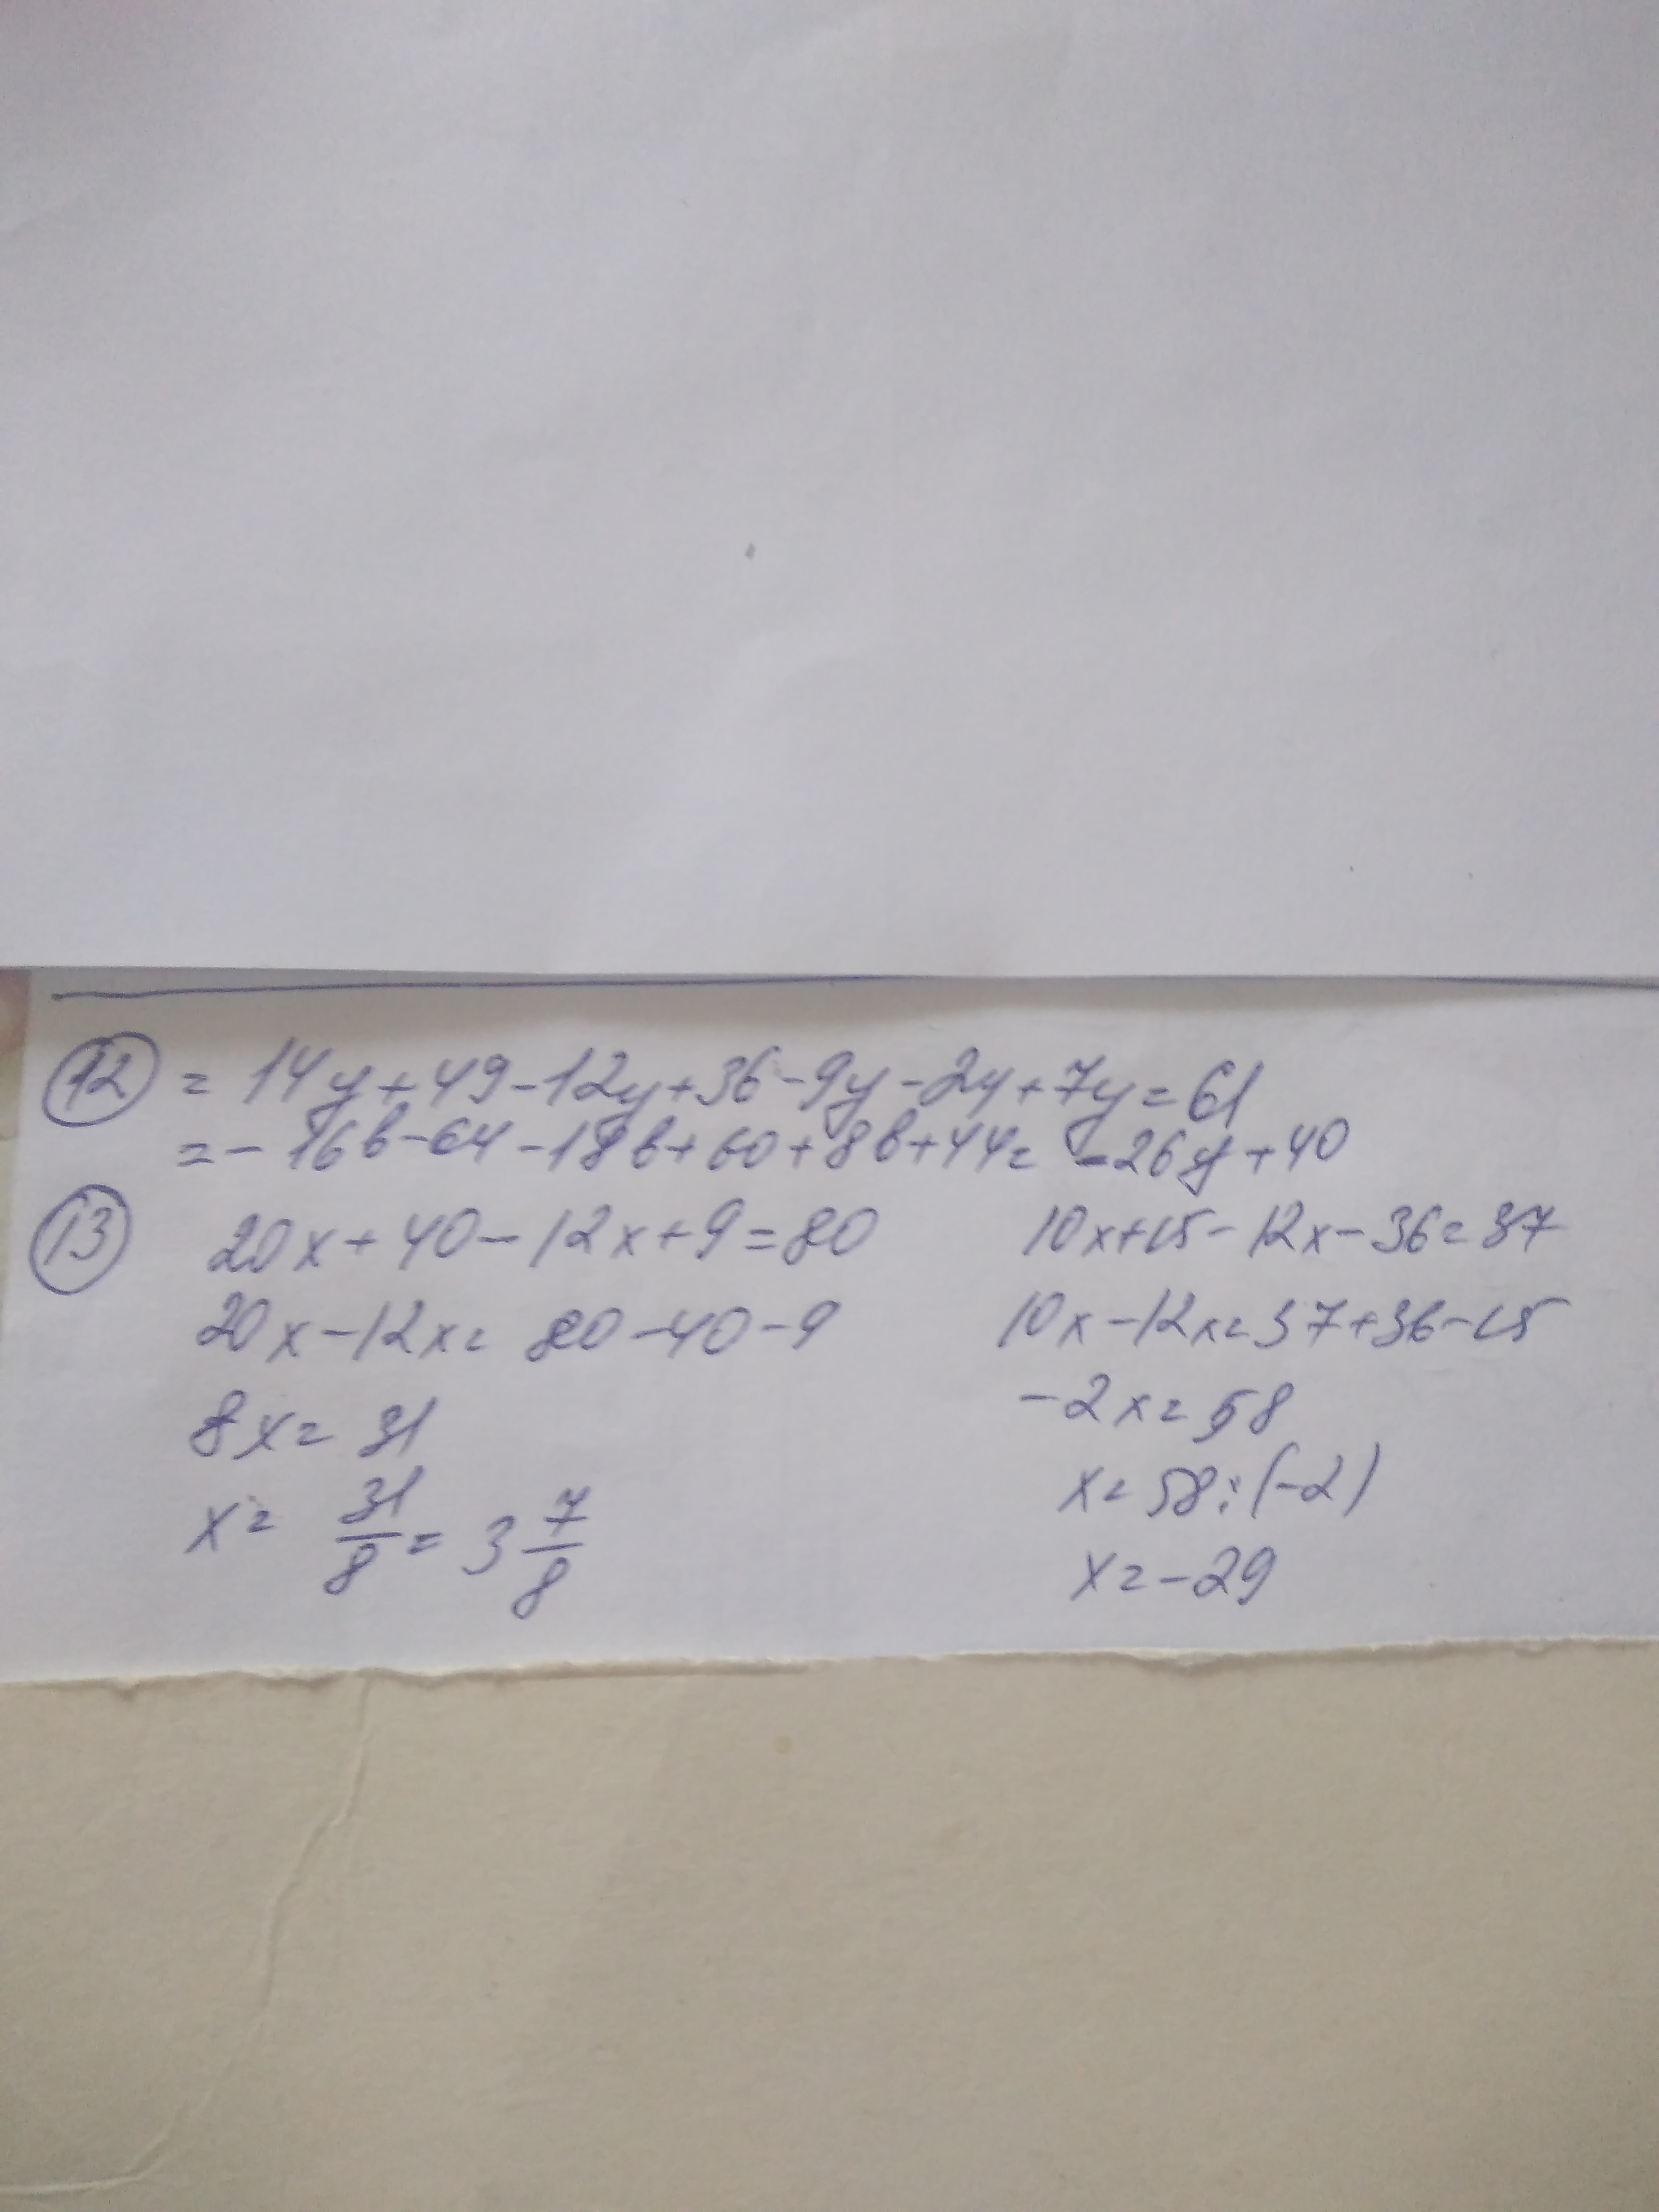 12 = 14y + 49 - 12y + 36 - 9y - 24 + 7y = 61
= - 16b - 64 - 18b + 60 + 8b + 44 = - 26y + 40
13 20x + 40 - 12x + 9 = 80
20x - 12x = 80 - 40 - 9
8x = 31
x = 31/8 = 3 7/8
10x + 15 - 12x - 36 = 37
10x - 12x = 37 + 36 - 15
-2x = 58
x = 58 : (-2)
x = -29